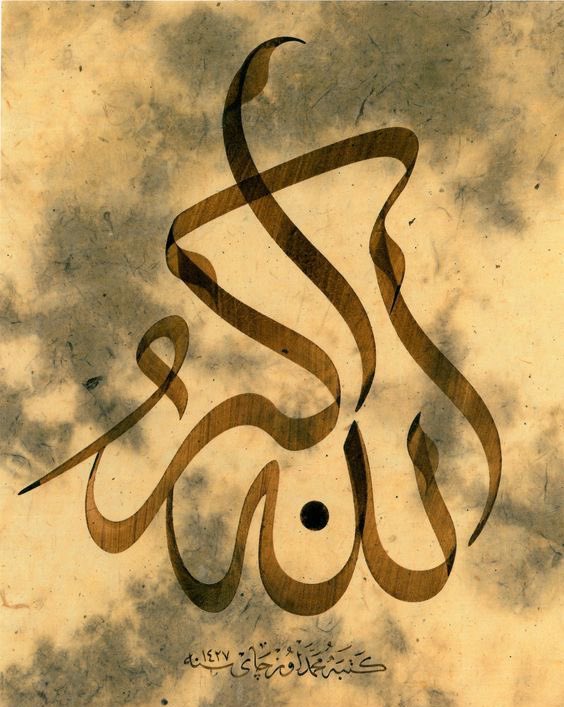 الله اكبر
كتبه محمد اوزچاى سنه ١٤٢٧